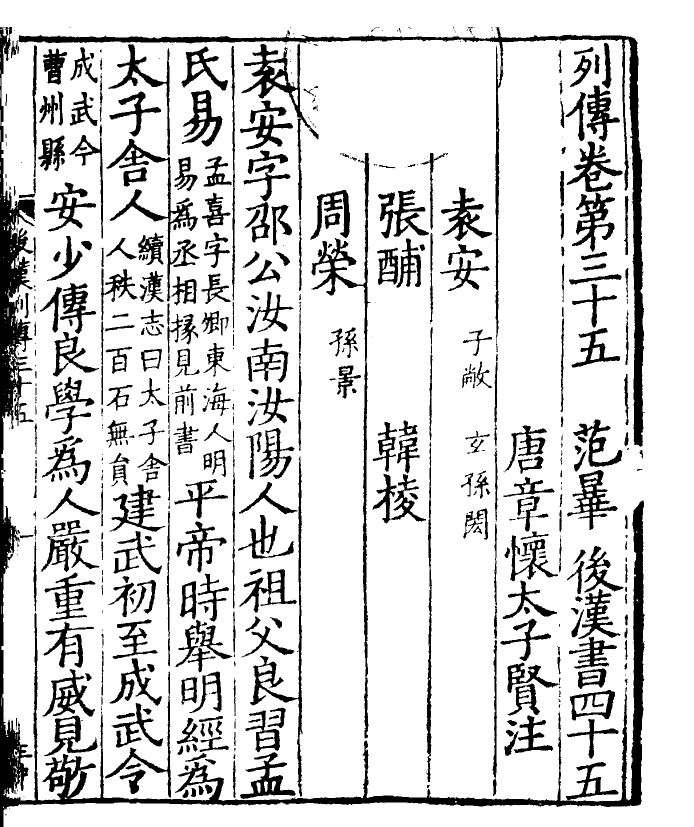 列傳卷第三十五 范曅 後漢書四十五
唐章懷太子賢注
袁安 子敞 玄孫閎
張酺 韓棱
周榮 孫景
袁安字邵公汝南汝陽人也祖父良習孟
氏易孟喜字長卿東海人明易爲丞相掾見前書平帝時舉明經爲
太子舍人續漢志曰太子舍人秩二百石無員建武初至成武令
成武今曹州縣安少傳良學爲人嚴重有威見敬
後漢列傳三十五